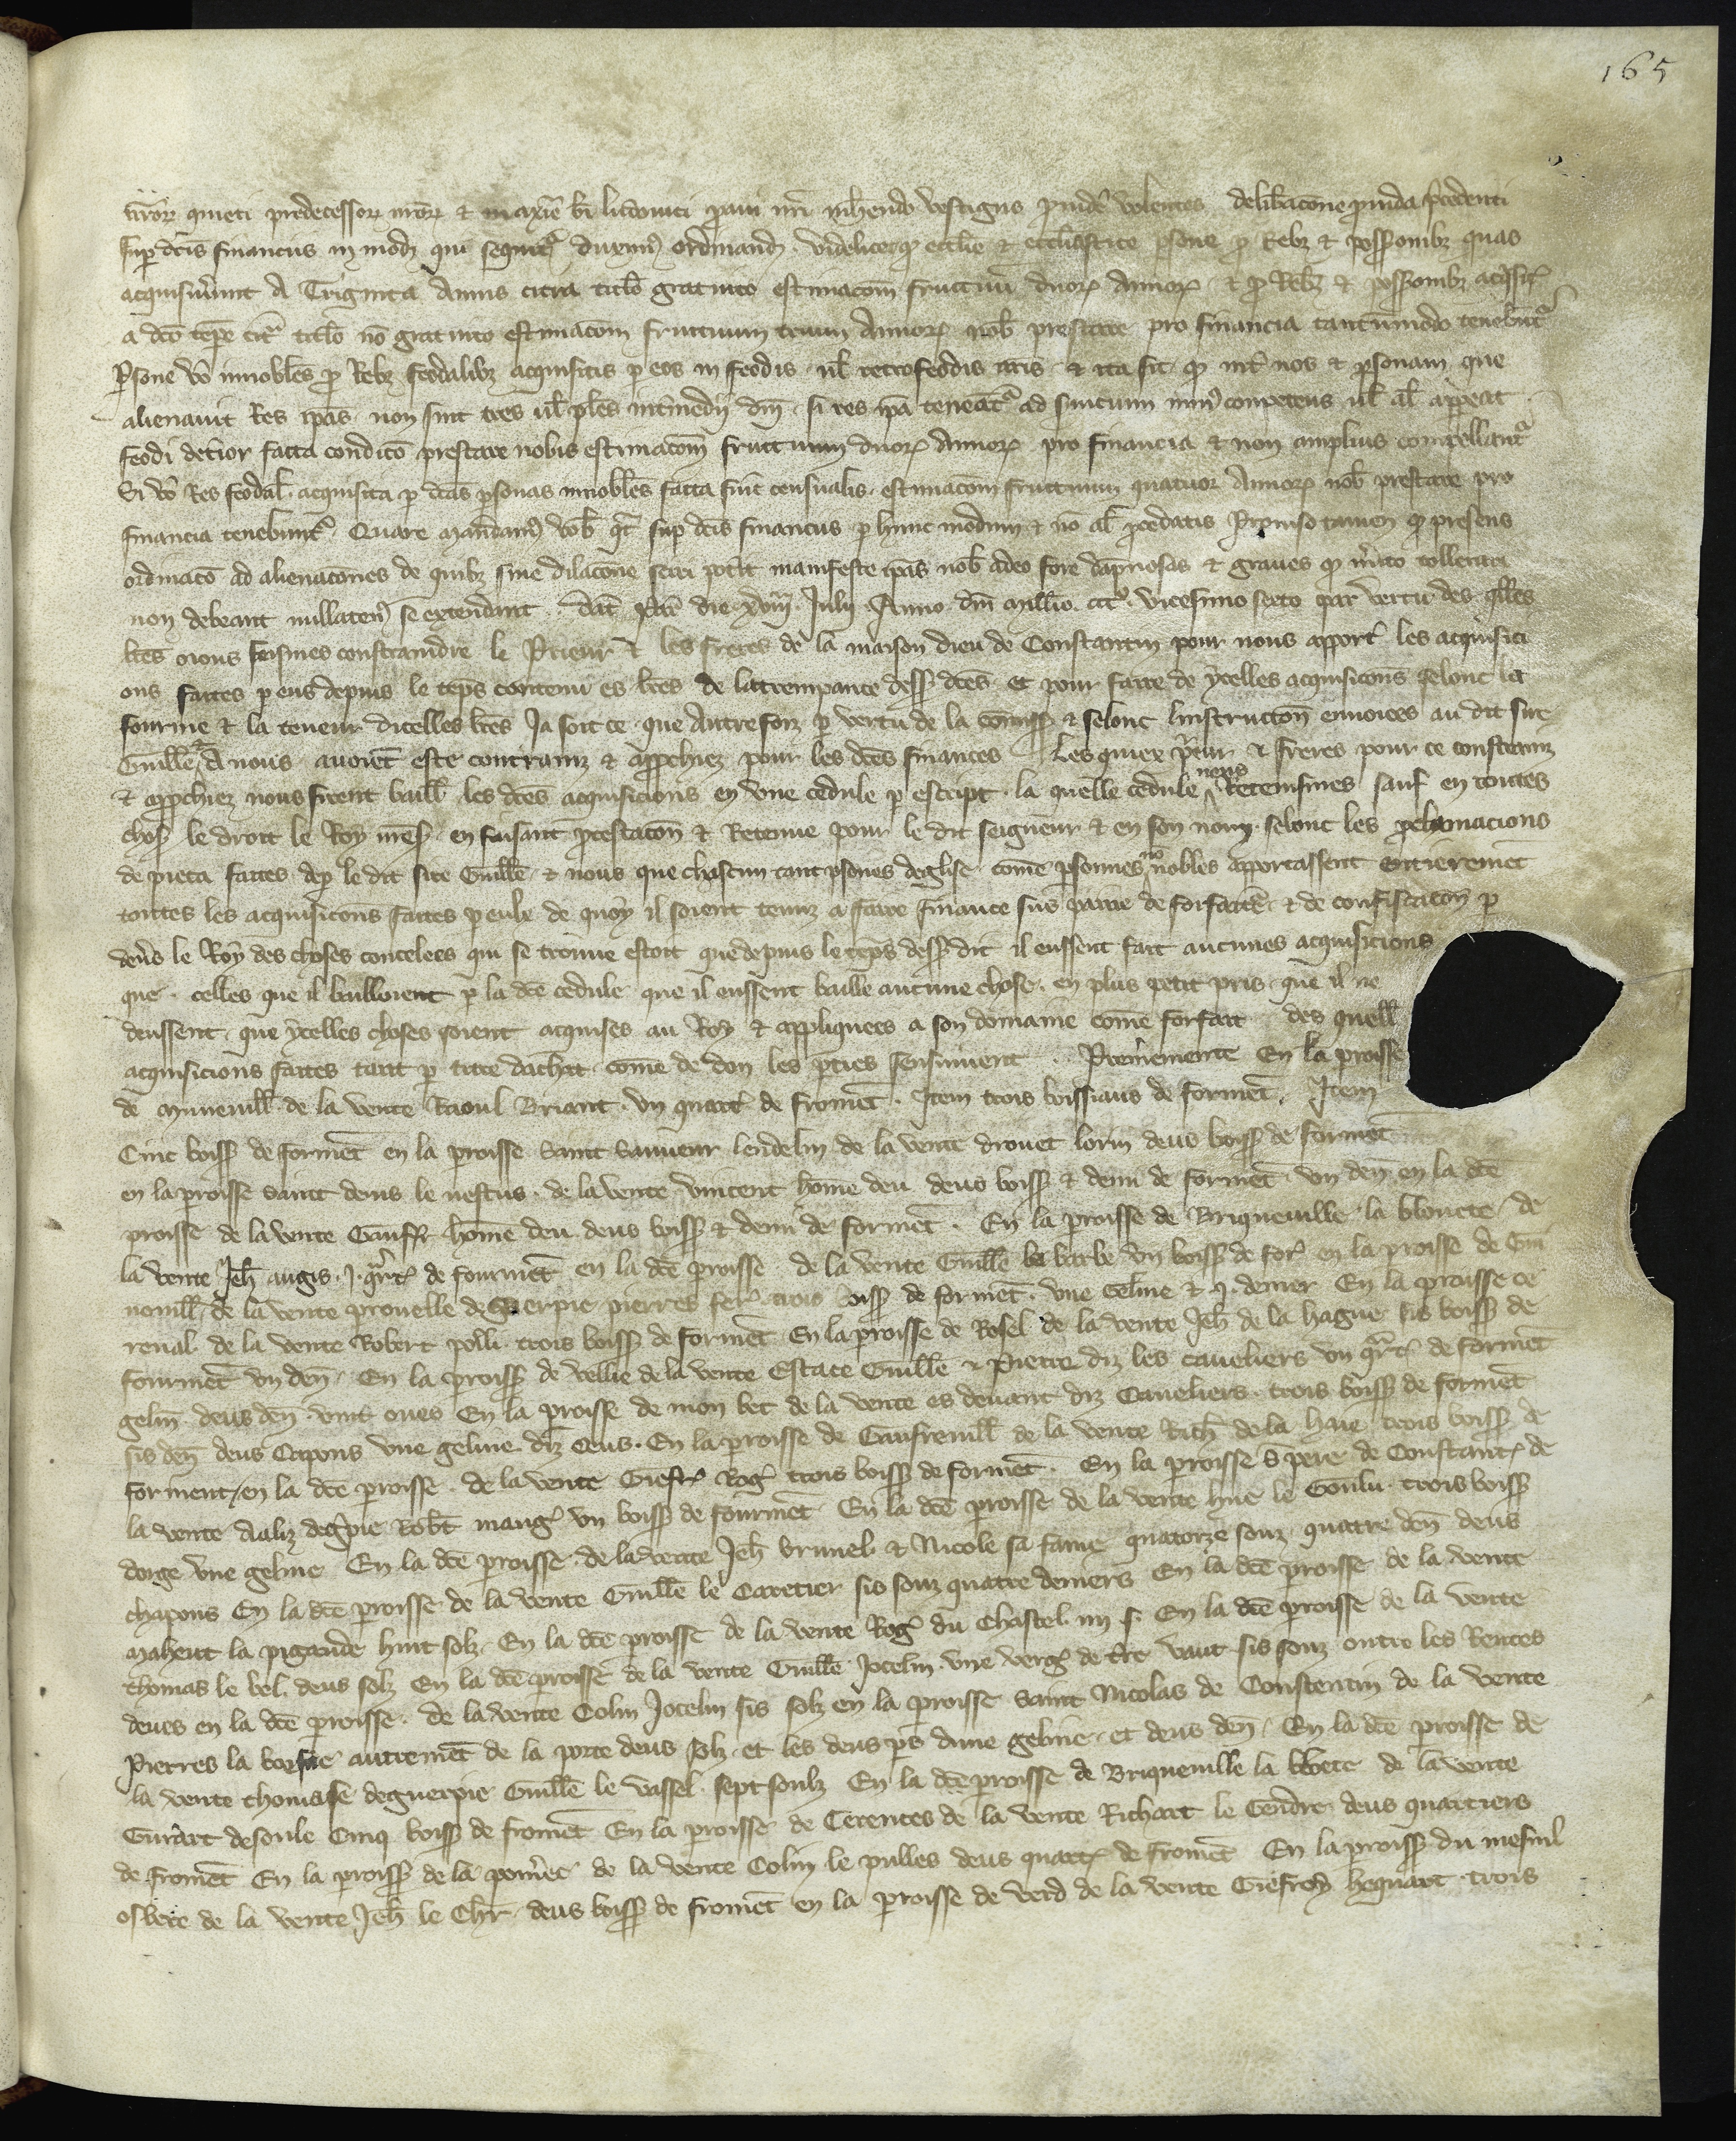 165
nror quieti predecessor nror et maxime bi ludovici pavi nri inherendo vestigiis providere volentes deliberacone provida precedenti
sup dcis financiis in modum qui sequitur duximus ordinandum videlicet quod ecclie et ecclesiastice psone pro rebz et possionibz quas
acquisiverunt a Triginta annis citra titulo gratuito estimacom fructuum duor annor et pro rebz et possionibz acqisit
a dco tepe citra titlo no gratuito estimacom fructuum trium annor nob prestare pro financia tantummodo tenebunt
Psone vo innobiles pro rebz feodalibz acquisitis p eos in feodis vel retrofeodis nris et ita sit quod inter nos et psonam que
alienavit res ipas non sint tres vel ples intermedii dni si res ipa teneatur ad servicium minus competens vel al appareat
feodi deterior facta condicio prestare nobis estimacom fructuum duor annor pro financia et non amplius compellantur
Si vo res feodal acquisita p dcas psonas innobiles facta sint censualis estimacom fructuum quatuor annor nob prestare pro
financia tenebuntur Quare mandamus vob qt sup dcis financiis p hunc modum et no al procedatis Proviso tamen quod presens
ordinaco ad alienacones de quibz sine dilacone sciri potit manifeste ipas nob adeo fore dampnosas et graves quod merito tollerari
non debeant nullatenus se extendant dat par die xviij Julij Anno dni millio ccc vicesimo sexto par vertu des qlles
lres nous feismes contraindre le Prieur et les freres de la maison dieu de Constantin pour nous apport les acquisici
ons faites p eus depuis le teps contenu es lres de lattrempance dess dces et pour faire de ycelles acquisicons selonc la
fourme et la teneur dicelles lres Ja soit ce que autrefoiz p vertu de la commiss et selonc linstruccon envoiees au dit sire
Guille et a nous avoiet este contrainz et approchiez pour les dces finances Les quiex prieur et freres pour ce contrainz
et approchiez nous firent baill les dces acquisicions en une cedule p escript la quelle cedule nous retenismes sauf en toutes
chos le droit le Roy mess en faisant protestacon et retenue pour le dit seigneur et en son nom selonc les proclamacions
de pieca faites dep le dit sire Guille et nous que chascun tant psones deglise come personnes no nobles apportassent entieremet
toutes les acquisicons faites p eulz de quoy il soient tenuz a faire finance sus paine de forfaitre et de confiscacon p
devs le Roy des choses concelees qui se trouve estoit que depuis le teps dess dit il eussent fait aucunes acquisicions
que celles que il bailloient p la dce cedule que il eussent baille aucune chose en plus petit pris que il ne
deussent que ycelles choses soient acquises au Roy et appliquees a son domaine come forfait des quell
acquisicions faites tant p titre dachat come de don les pties sensuivent Premiemente En la proisse
de muneuill de la vente Raoul Briant un quart de fromet Item trois boissiaus de formet Item
Cinc boiss de formet en la proisse saint sauveur lendelin de la vente drouet lorin deus boiss de formet
en la proisse saint denis le vestus de la vente vincent home deu deus boiss et demi de formet un den en la dce
proisse de la vente Gauffr home deu deus boiss et demi de formet En la proisse de Briqueville la bloete de
la vente Jeh augis j qrt de fourmet en la dce proisse de la vente Guille la barbe un boiss de for en la proisse de Gui
nouill de la vente pronelle deguerpie pierres fer trois boiss de formet une geline et j denier En la proisse de
renal de la vente Robert polli trois boiss de formet En la proisse de Rosel de la vente Jeh de la hague sis boiss de
fourmet un den En la proiss de vellie de la vente Estace Guille et Pierre diz les caveliers un qrt de formet
gelin deus den vint oues En la proisse de mon bec de la vente es devant diz Caveliers trois boiss de formet
sis den deus Capons une geline diz oeus En la proisse de Gaufreuill de la vente Rich de la hue trois boiss de
forment en la dce proisse de la vente Giefr Rog trois boiss de formet En la proisse s pere de Constant de
la vente Aaliz degpie Robt maug un boiss de fourmet En la dce proisse de la vente hue le Goulu trois boiss
dorge une geline En la dce proisse de la vente Jeh brunel et Nicole sa fame quatorze souz quatre den deus
chapons En la dce proisse de la vente Guille le Caretier sis souz quatre deniers En la dce proisse de la vente
Maheut la pigande huit solz En la dce proisse de la vente Rog du Chastel iiij s En la dce proisse de la vente
thomas le bel deus solz En la dce proisse de la vente Guille Jocelin une verg de tre vaut sis souz outre les rentes
deues en la dce proisse de la vente Colin Jocelin sis solz en la proisse saint Nicolas de Constentin de la vente
Pierres la borsne autremet de la porte deus solz et les deus ps dune geline et deus den En la dce proisse de
la vente thomasse deguerpie Guille le vassel sept soulz En la dce proisse de Briqueville la bloete de la vente
Guirart desoule Cinq boiss de fromet En la proisse de Cerences de la vente Richart le Gendre deus quartiers
de fromet En la proiss de la pomree de la vente Colin le pulles deus quart de fromet En la proiss du mesnil
osbere de la vente Jeh le Chr deus boiss de fromet en la proisse de verd de la vente Giefroy hequart trois